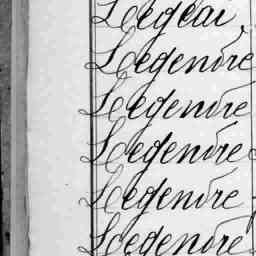 Legeai
Legendre
Legendre
Legendre
Legendre
Legendre